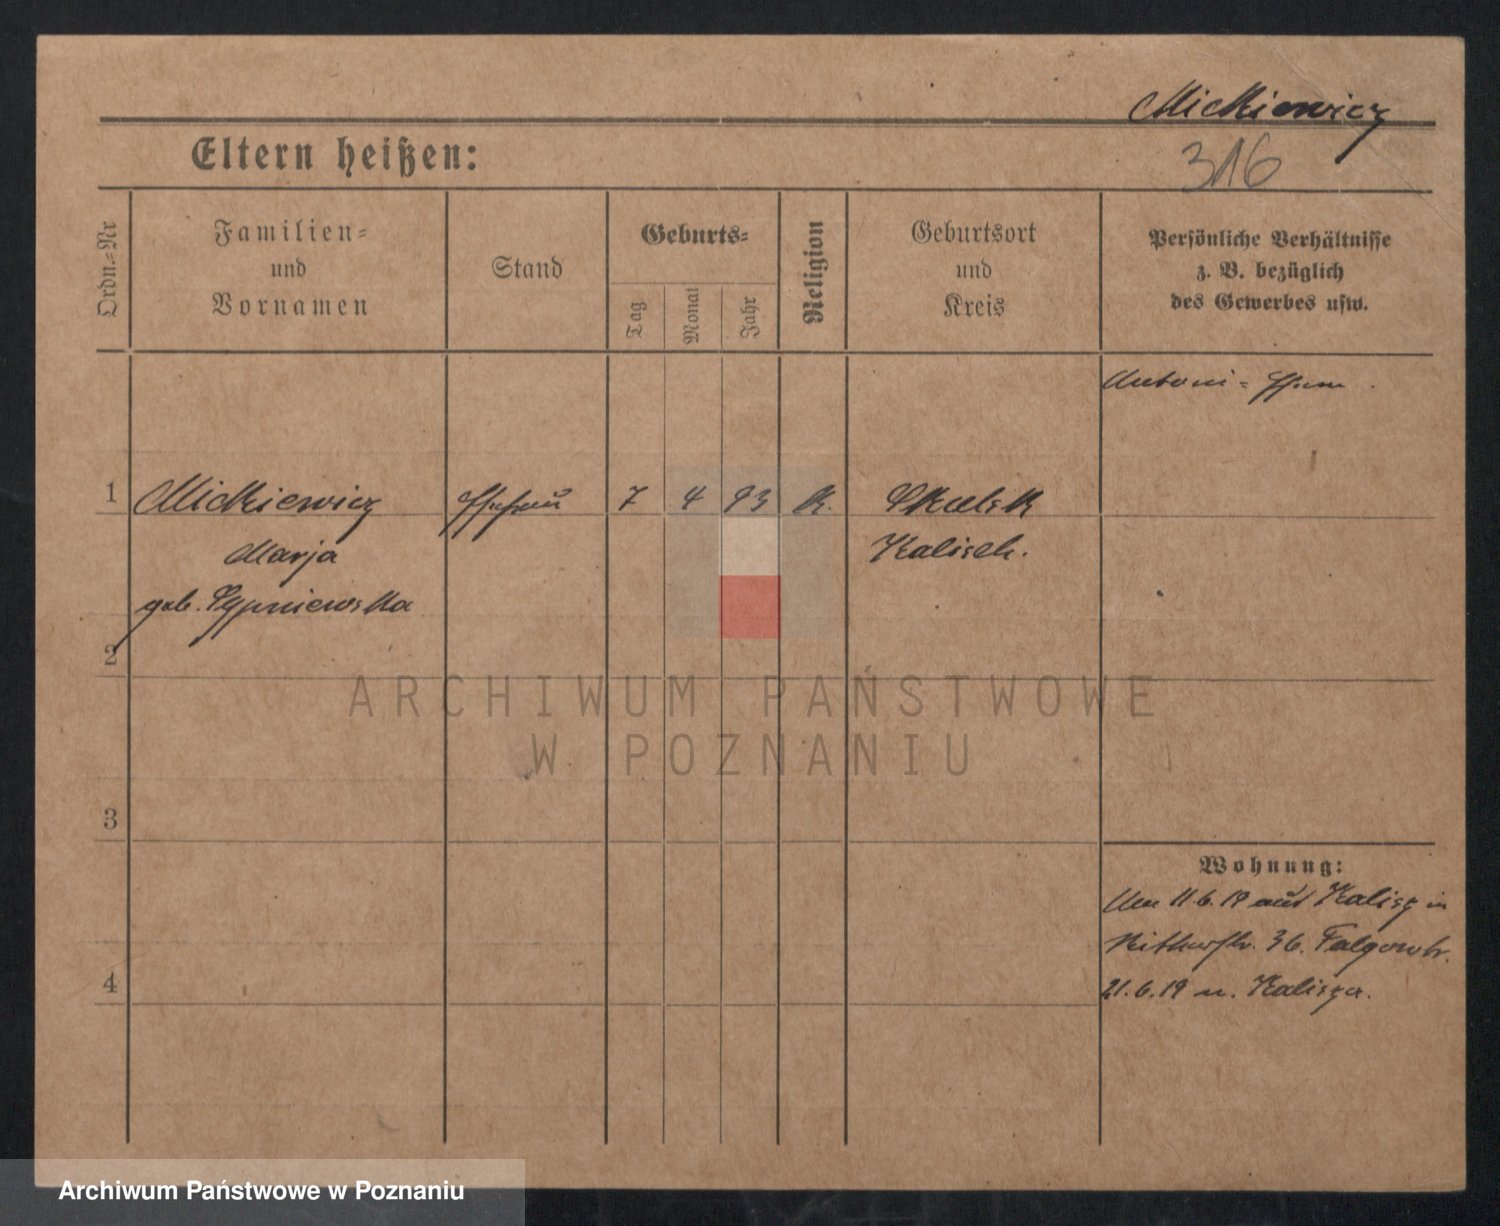 Mickiewicz
Eltern heißen:
316
Ordn.-Nr
Familien-
und
Vornamen
Stand
Geburts-
Tag
Monat
Jahr
Religion
Geburtsort
und
Kreis
Persönliche Verhältnisse
z. B. bezüglich
des Gewerbes usw.
Antoni =
1 Mickiewicz Ehefrau 7 4 93 K. Skulsk
Marja Kalisch.
geb. Sypniewska
2
ARCHIWUM PAŃSTWOWE
W POZNANIU
3
Wohnung:
11.6.19 aus Kalisz in
Ritterstr. 36.
4
21.6.19 n. Kalisza.
Archiwum Państwowe w Poznaniu